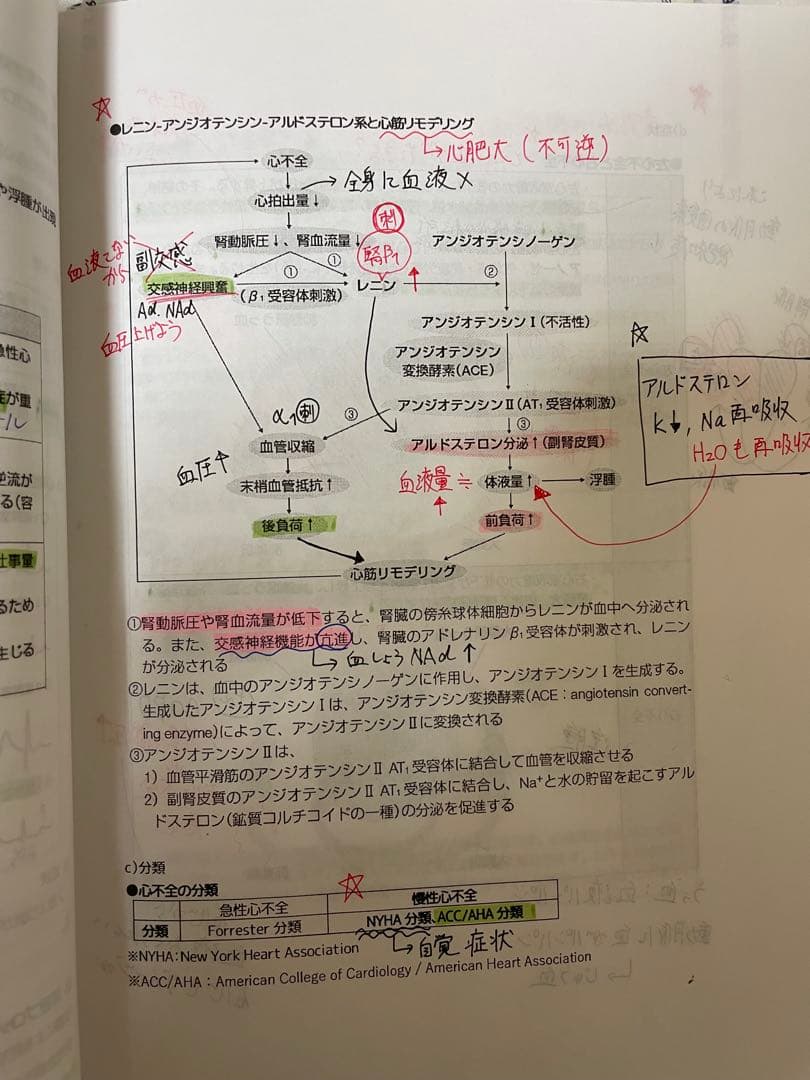 ●レニン-アンジオテンシン-アルドステロン系と心筋リモデリング
→心肥大(不可逆)
心不全
心拍出量↓
→全身に血液×
腎動脈圧↓、腎血流量↓
刺
腎β₁
アンジオテンシノーゲン
血液てないから
副交感
交感神経興奮
①
①
(β₁受容体刺激)
レニン
↑
②
Ad. NAd
血圧上げよう
アンジオテンシンⅠ(不活性)
アンジオテンシン
変換酵素(ACE)
アンジオテンシンⅡ(AT₁受容体刺激)
α₁刺
③
③
血管収縮
アルドステロン分泌↑(副腎皮質)
血圧↑
末梢血管抵抗↑
血液量≒
↑
体液量↑
浮腫
後負荷↑
前負荷↑
心筋リモデリング
アルドステロン
K↓, Na再吸収
H₂Oも再吸収
①腎動脈圧や腎血流量が低下すると、腎臓の傍糸球体細胞からレニンが血中へ分泌され
る。また、交感神経機能が亢進し、腎臓のアドレナリンβ₁受容体が刺激され、レニン
が分泌される
→血しょうNAd↑
②レニンは、血中のアンジオテンシノーゲンに作用し、アンジオテンシンⅠを生成する。
生成したアンジオテンシンⅠは、アンジオテンシン変換酵素(ACE:angiotensin convert-
ing enzyme)によって、アンジオテンシンⅡに変換される
③アンジオテンシンⅡは、
1)血管平滑筋のアンジオテンシンⅡ AT₁受容体に結合して血管を収縮させる
2)副腎皮質のアンジオテンシンⅡ AT₁受容体に結合し、Na⁺と水の貯留を起こすアル
ドステロン(鉱質コルチコイドの一種)の分泌を促進する
c)分類
●心不全の分類
急性心不全 慢性心不全
分類 Forrester 分類 NYHA 分類、ACC/AHA 分類
→自覚症状
※NYHA:New York Heart Association
※ACC/AHA:American College of Cardiology / American Heart Association
や浮腫が出現
急性心
が重
逆流が
る(容
仕事量
るため
生じる